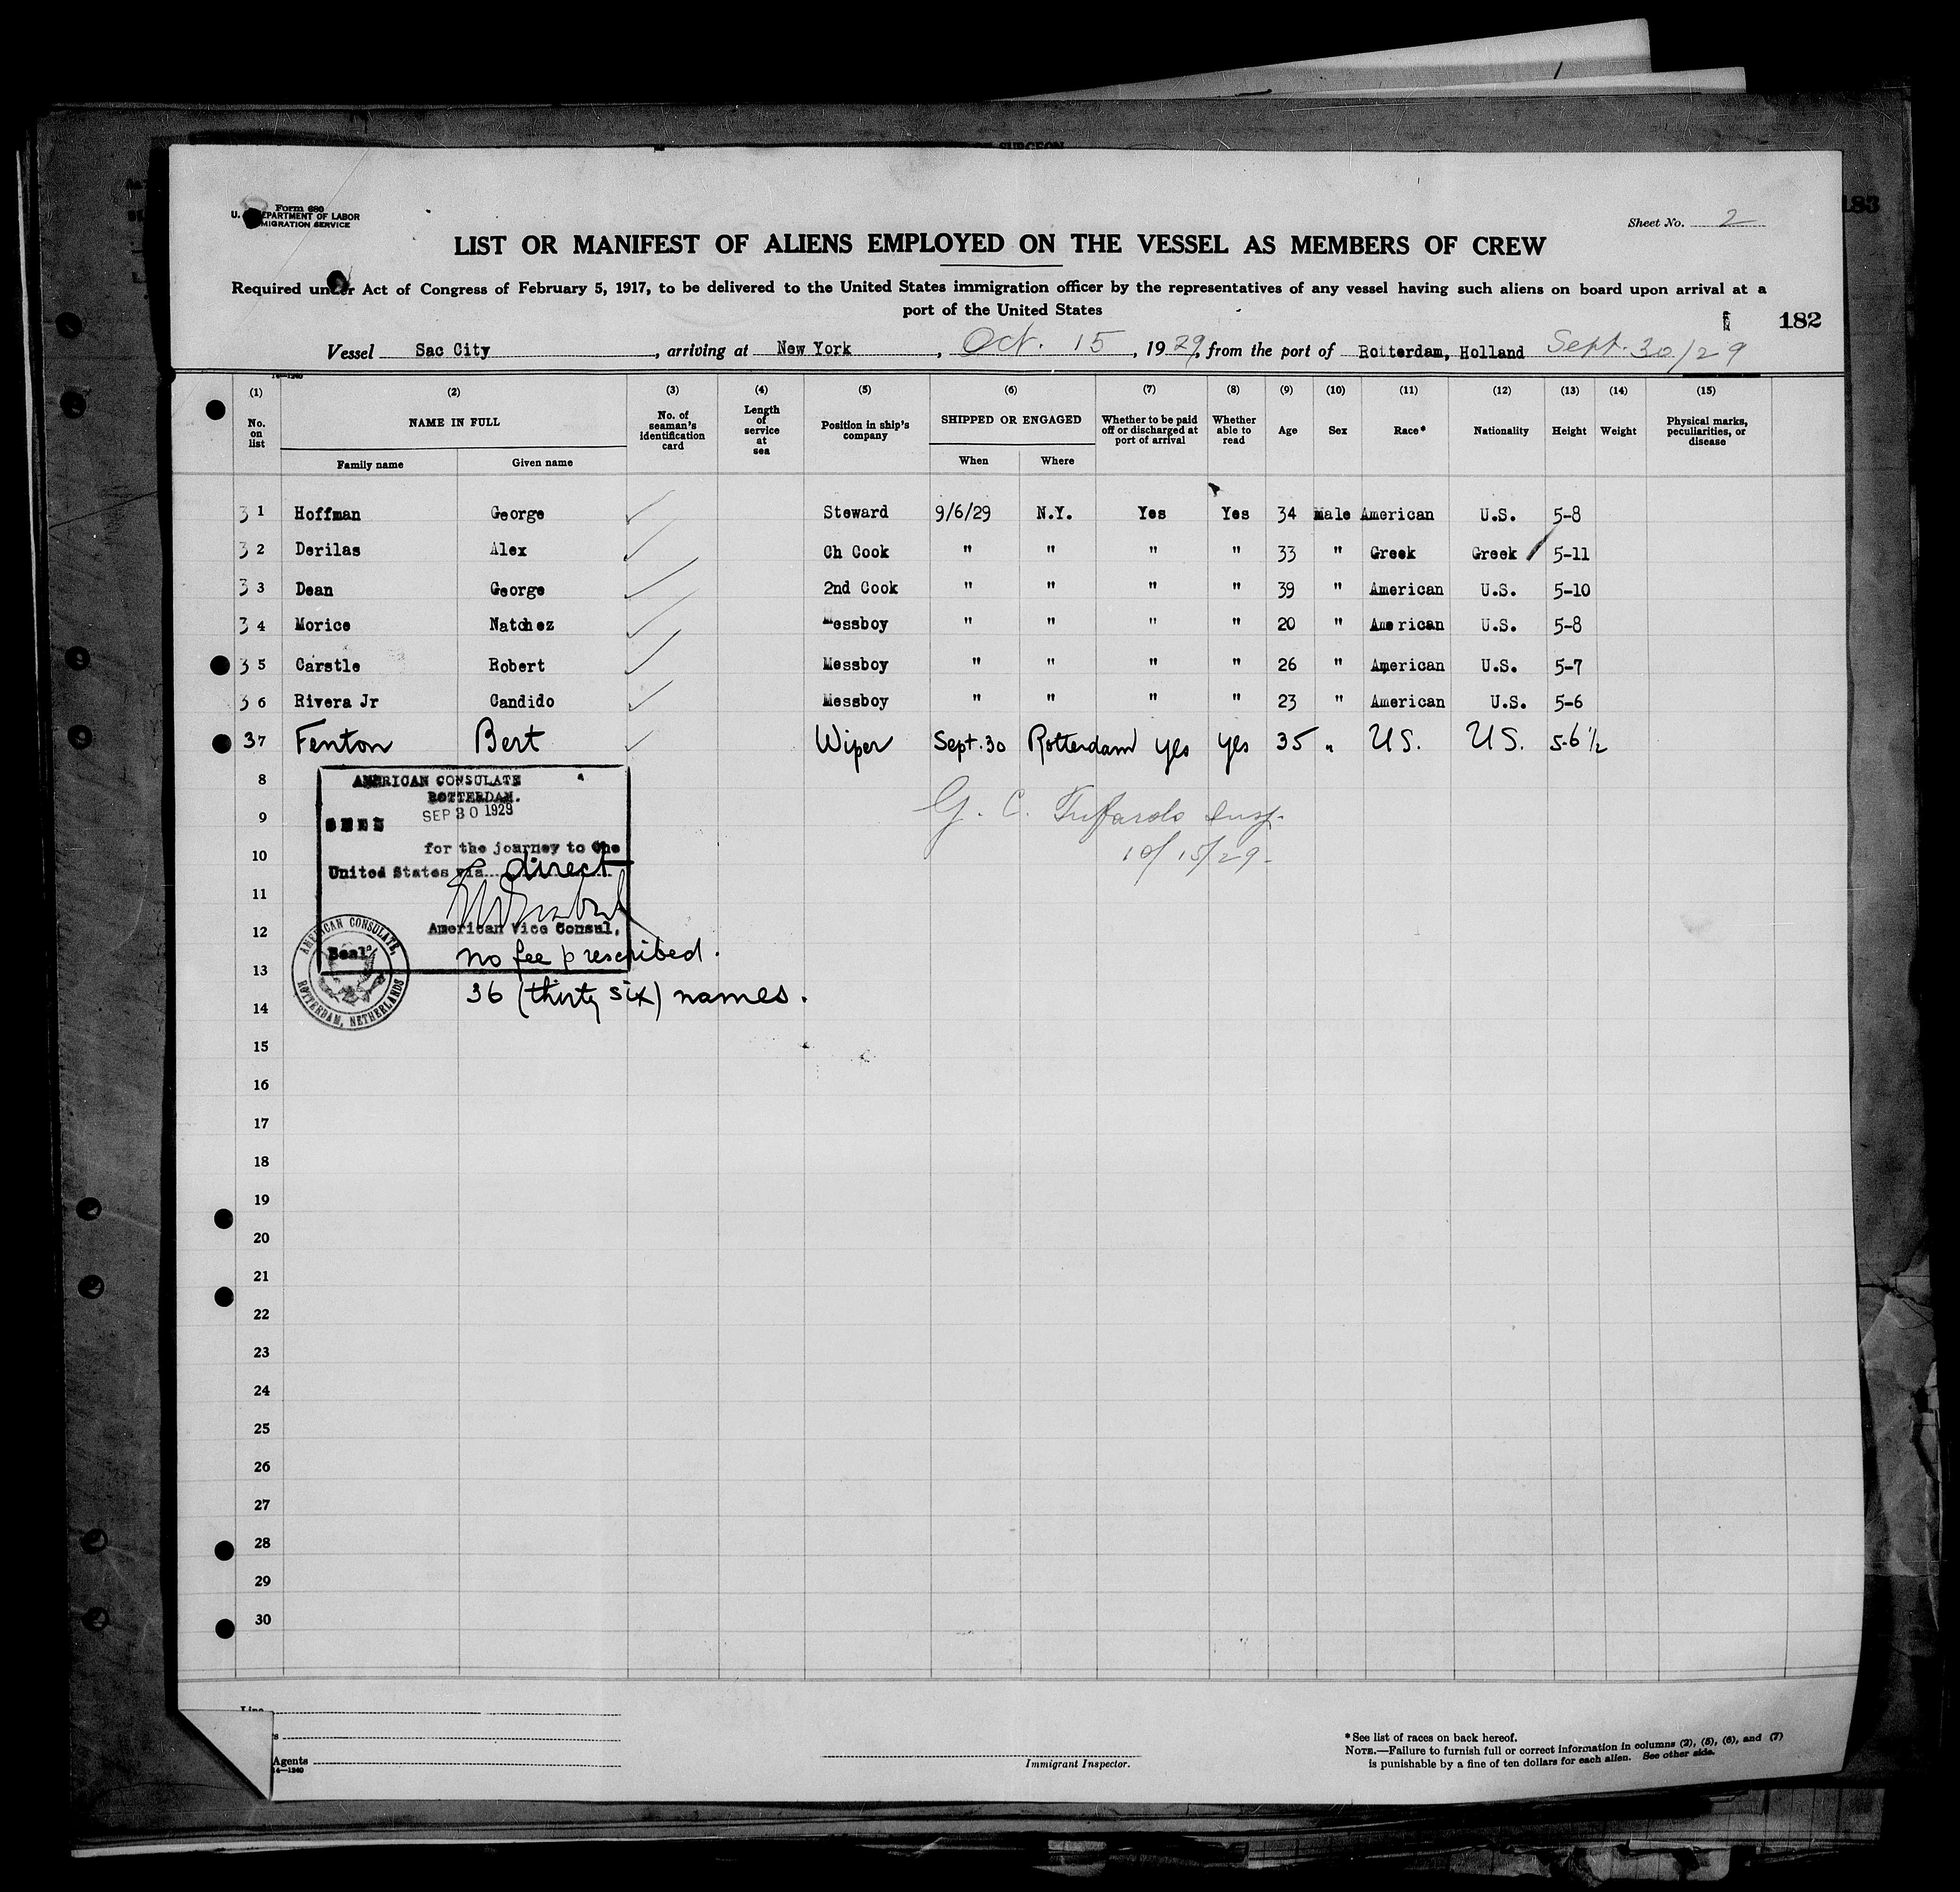 OF SURGEON
183
Form 680
U. DEPARTMENT OF LABOR
MIGRATION SERVICE
Sheet No. 2
LIST OR MANIFEST OF ALIENS EMPLOYED ON THE VESSEL AS MEMBERS OF CREW
Required under Act of Congress of February 5, 1917, to be delivered to the United States immigration officer by the representatives of any vessel having such aliens on board upon arrival at a
port of the United States
182
Vessel Sac City, arriving at New York, Oct. 15, 1929, from the port of Rotterdam, Holland Sept. 30/29
(1) (2) (3) (4) (5) (6) (7) (8) (9) (10) (11) (12) (13) (14) (15)
No. on list NAME IN FULL No. of seaman's identification card Length of service at sea Position in ship's company SHIPPED OR ENGAGED Whether to be paid off or discharged at port of arrival Whether able to read Age Sex Race* Nationality Height Weight Physical marks, peculiarities, or disease
Family name Given name When Where
31 Hoffman George ✓ Steward 9/6/29 N.Y. Yes Yes 34 Male American U.S. 5-8
32 Derilas Alex ✓ Ch Cook " " " " 33 " Greek Greek 5-11
33 Dean George ✓ 2nd Cook " " " " 39 " American U.S. 5-10
34 Morice Natchez ✓ Messboy " " " " 20 " American U.S. 5-8
35 Carstle Robert ✓ Messboy " " " " 26 " American U.S. 5-7
36 Rivera Jr Candido ✓ Messboy " " " " 23 " American U.S. 5-6
37 Fenton Bert ✓ Wiper Sept. 30 Rotterdam yes yes 35 " U.S. U.S. 5-6 1/2
8
AMERICAN CONSULATE
ROTTERDAM.
SEP 30 1929
9
SEEN
G. C. Insp.
10/15/29
for the journey to the
10
United States via direct
11
12
American Vice Consul,
Seal
no fee prescribed.
13
AMERICAN CONSULATE, ROTTERDAM, NETHERLANDS
36 (thirty six) names.
14
15
16
17
18
19
20
21
22
23
24
25
26
27
28
29
30
Line
s
Agents
14—1240
Immigrant Inspector.
*See list of races on back hereof.
NOTE.—Failure to furnish full or correct information in columns (2), (5), (6), and (7)
is punishable by a fine of ten dollars for each alien. See other side.